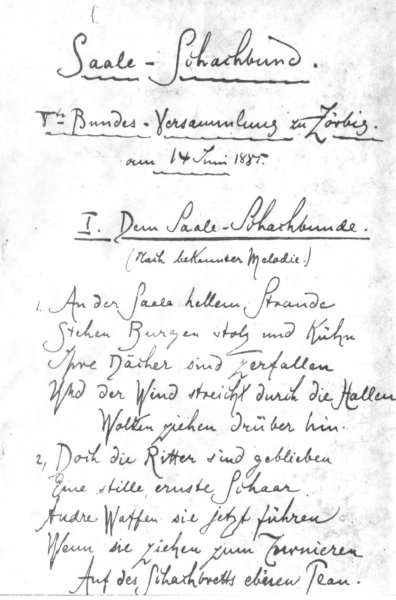 Saale-Schachbund.
Vte Bundes-Versammlung zu Zörbig.
am 14 Juni 1885.
I. Dem Saale-Schachbunde.
(Nach bekannter Melodie.)
1. An der Saale hellem Strande
Stehen Burgen stolz und Kühn
Ihre Dächer sind zerfallen
Und der Wind streicht durch die Hallen
Wolken ziehen drüber hin.
2, Doch die Ritter sind geblieben
Eine stille, ernste Schaar.
Andre Waffen sie jetzt führen
Wenn sie ziehen zum Turnieren
Auf des Schachbretts ebenen Plan.